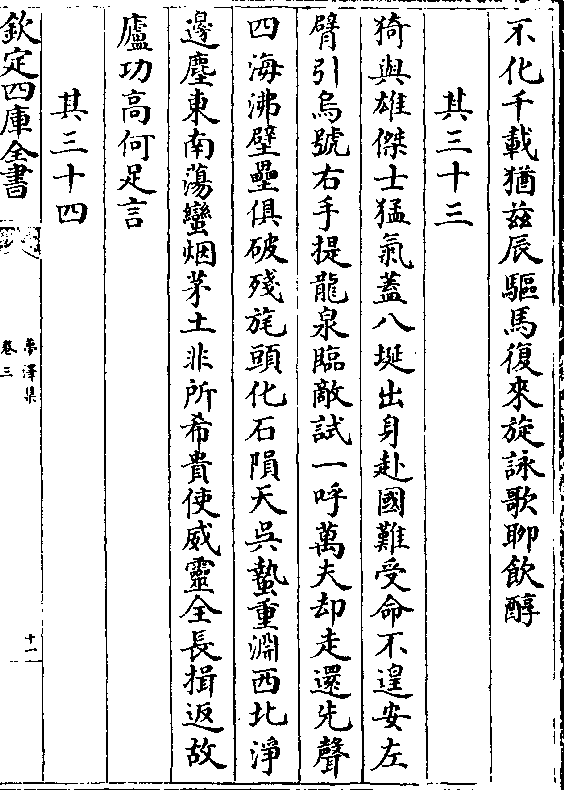 不化千載猶兹辰驅馬復來旋詠歌聊飲醇
其三十三
猗與雄傑士猛氣蓋八埏出身赴國難受命不遑安左
臂引烏號右手提龍泉臨敵試一呼萬夫却走還先聲
四海沸壁壘俱破殘旄頭化石隕天吳蟄重淵西北淨
邊塵東南蕩蠻烟茅土非所希貴使威靈全長揖返故
廬功高何足言
其三十四
欽定四庫全書
夢澤集
卷三
十一